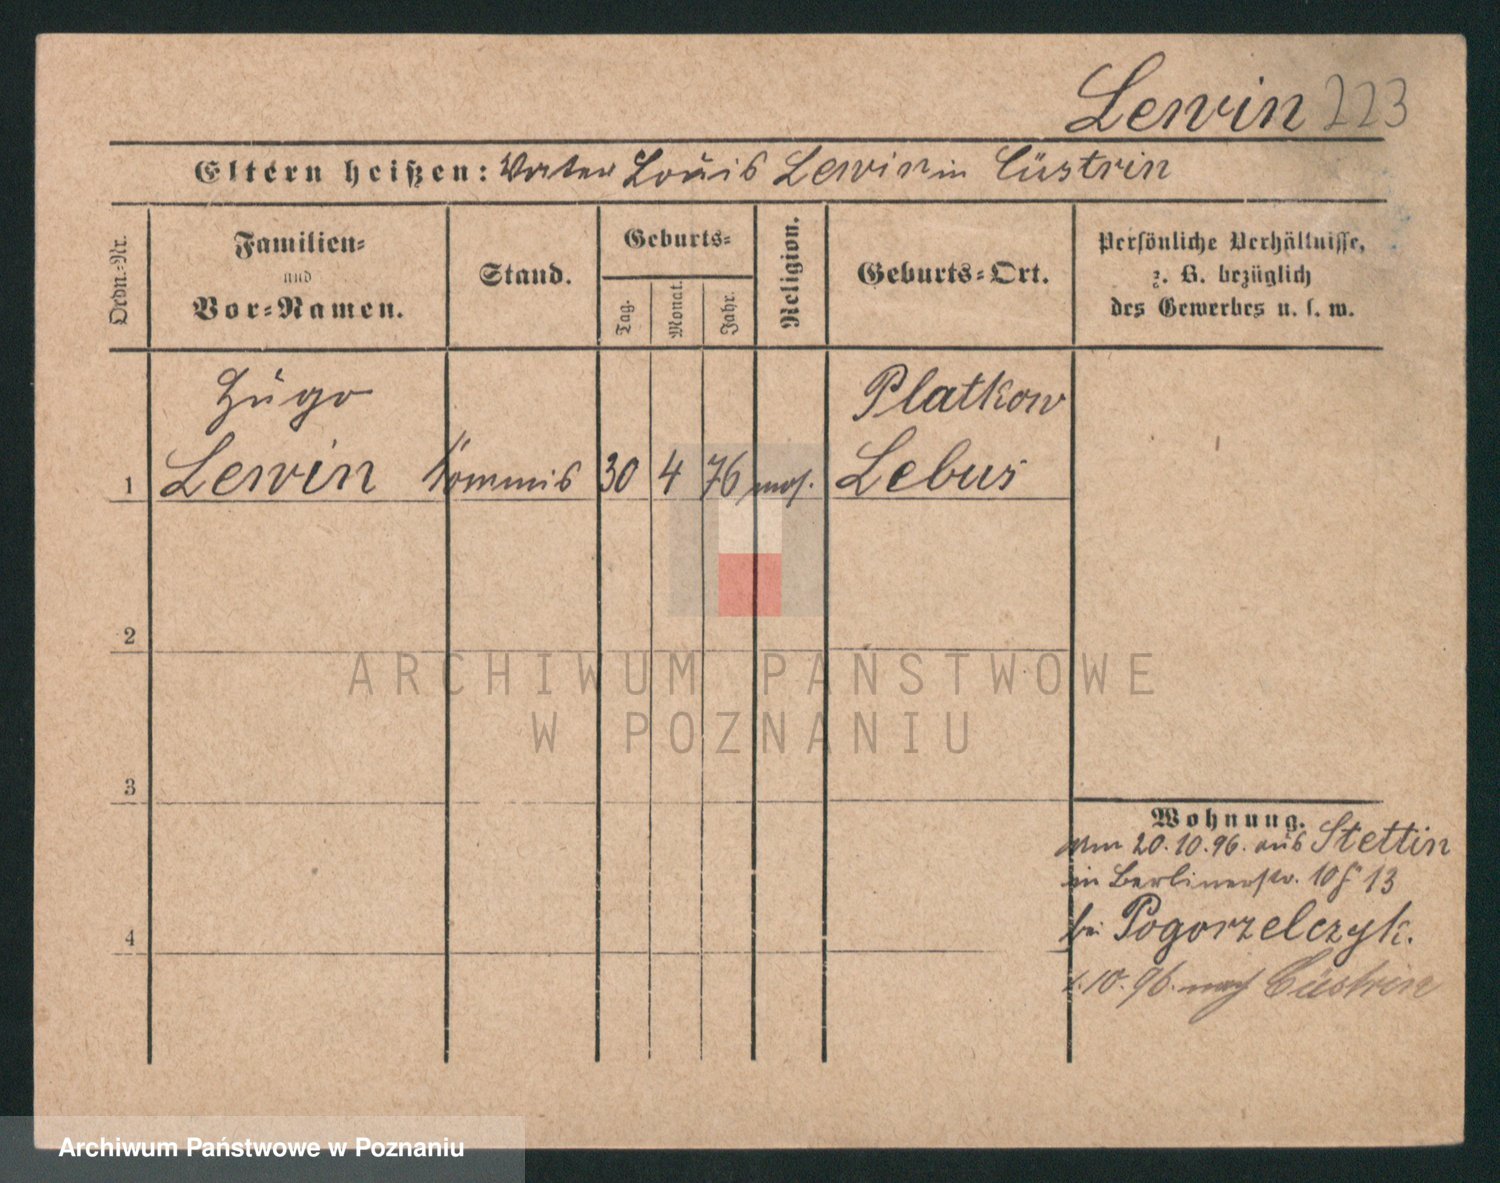 Lewin 223
Eltern heißen: Vater Louis Lewin in Cüstrin
Ordn.=Nr.
Familien=
und
Vor=Namen.
Stand.
Geburts=
Tag.
Monat.
Jahr.
Religion.
Geburts=Ort.
Persönliche Verhältnisse,
z. B. bezüglich
des Gewerbes u. s. w.
Hugo
Platkow
1 Lewin Kommis 30 4 76 mos. Lebus
2
ARCHIWUM PAŃSTWOWE
W POZNANIU
3
Wohnung.
20.10.96. aus Stettin
in Berlinerstr. 10 13
4
bei Pogorzelczyk.
10. 96. nach Cüstrin
Archiwum Państwowe w Poznaniu